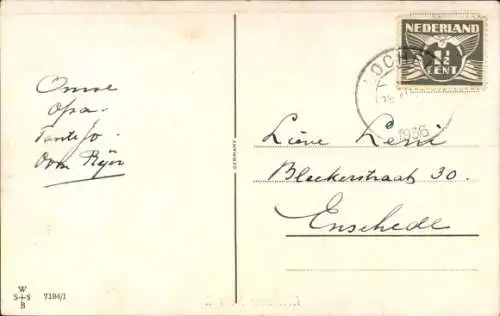 Omoe
opa.
Tante Jo.
Oom Rijn
W
S+S
B
7104/1
GERMANY
NEDERLAND
1½
CENT
LOCHEM
1936
Lieve Leni
Blekerstraat 30.
Enschede